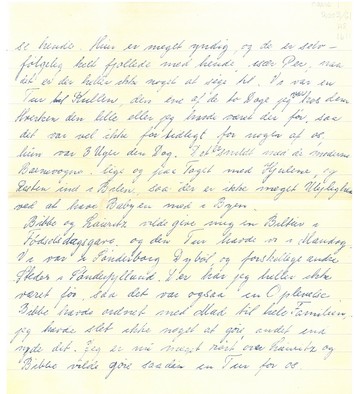 se hende. Hun er meget yndig og de er selv-
følgelig helt fjollede med hende især Per, naa
det er der heller ikke noget at sige til. Vi var en
Tur til Kullen, den ene af de to Dage jeg var hos dem
hverken den lille eller jeg havde været der før, saa
det var vel ikke for tidligt for nogen af os,
hun var 3 Uger den Dag. med de moderne
Barnevogne. tage og Toget med Hjulene, og
Resten ind i Bilen, saa der er ikke meget
ved at have Babyen med i Byen.
Bibbe og Lauritz vilde give mig en Biltur i
Fødselsdagsgave, og den Tur havde vi i Mandag.
Vi var i Dybøl og forskellige andre
Steder i Sønderjylland. Der har jeg heller ikke
været før, saa det var ogsaa en Oplevelse.
Bibbe havde ordnet med Mad til hele Familien,
jeg havde slet ikke noget at gøre andet end
nyde det. Jeg er nu meget rørt over Lauritz og
Bibbe vilde gøre saadan en Tur for os.